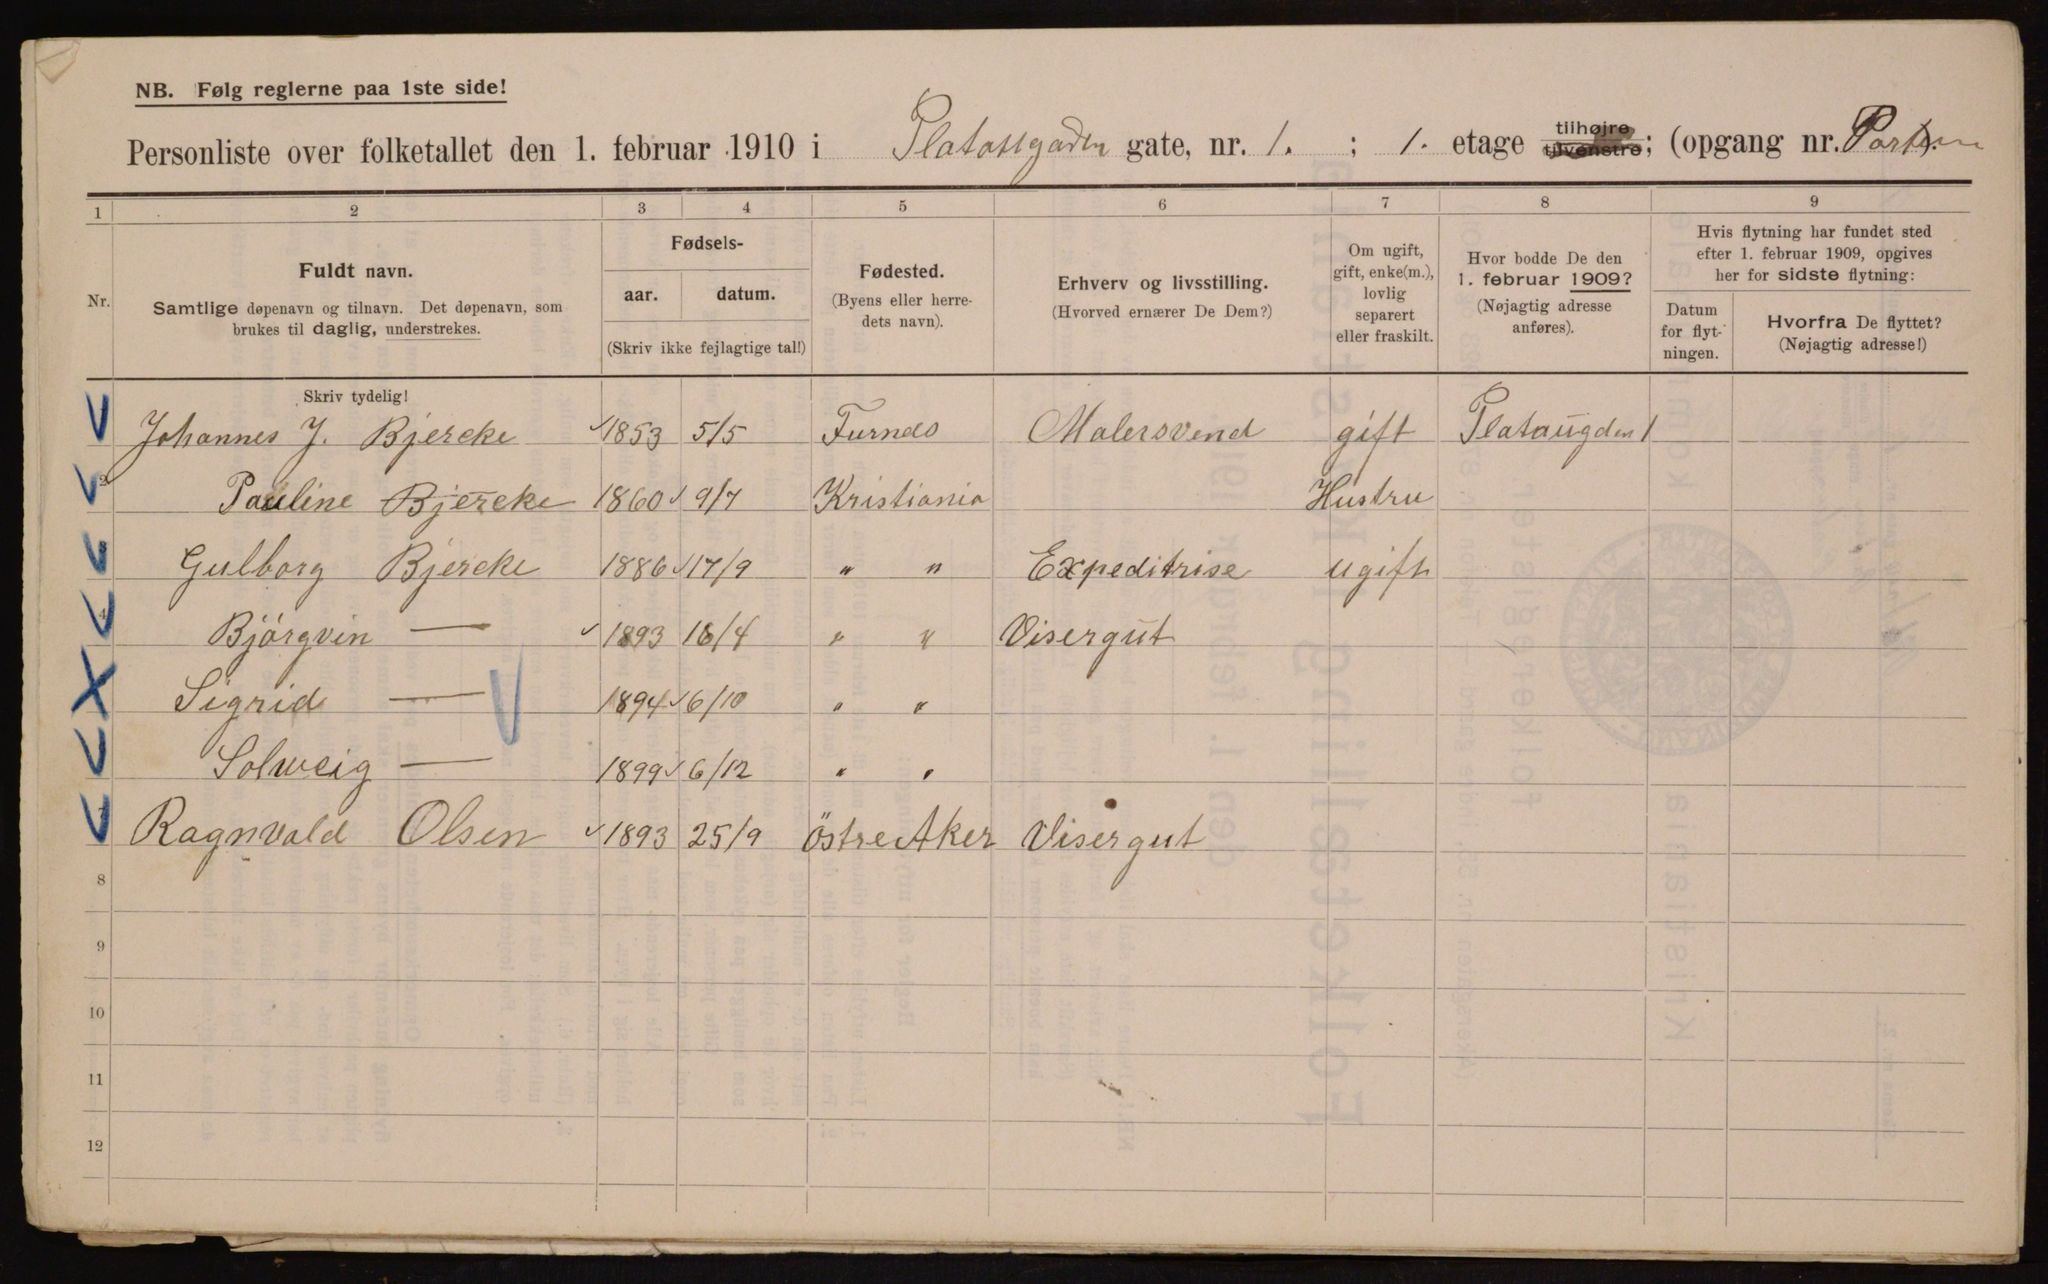 NB. Følg reglerne paa 1ste side!
Personliste over folketallet den 1. februar 1910 i Platousgaden gate, nr. 1. ; 1. etage tilhøjre tilvenstre; (opgang nr. Porten
1 2 3 4 5 6 7 8 9
Nr.
Fuldt navn.
Samtlige døpenavn og tilnavn. Det døpenavn, som
brukes til daglig, understrekes.
Fødsels-
aar. datum.
(Skriv ikke fejlagtige tal!)
Fødested.
(Byens eller herre-
dets navn).
Erhverv og livsstilling.
(Hvorved ernærer De Dem?)
Om ugift,
gift, enke(m.),
lovlig
separert
eller fraskilt.
Hvor bodde De den
1. februar 1909?
(Nøjagtig adresse
anføres).
Hvis flytning har fundet sted
efter 1. februar 1909, opgives
her for sidste flytning:
Datum
for flyt-
ningen.
Hvorfra De flyttet?
(Nøjagtig adresse!)
Skriv tydelig!
Johannes J. Bjercke 1853 5/5 Furnæs Malersvend gift Plataugden 1
2 Pauline Bjercke 1860 9/7 Kristiania Hustru
Gulborg Bjercke 1886 17/9 " " Expeditrise ugift
4 Bjørgvin — 1893 16/4 " " Visergut
Sigrid — 1894 6/10 " "
Solweig — 1899 6/12 " "
7 Ragnvald Olsen 1893 25/9 Østre Aker Visergut
8
9
10
11
12